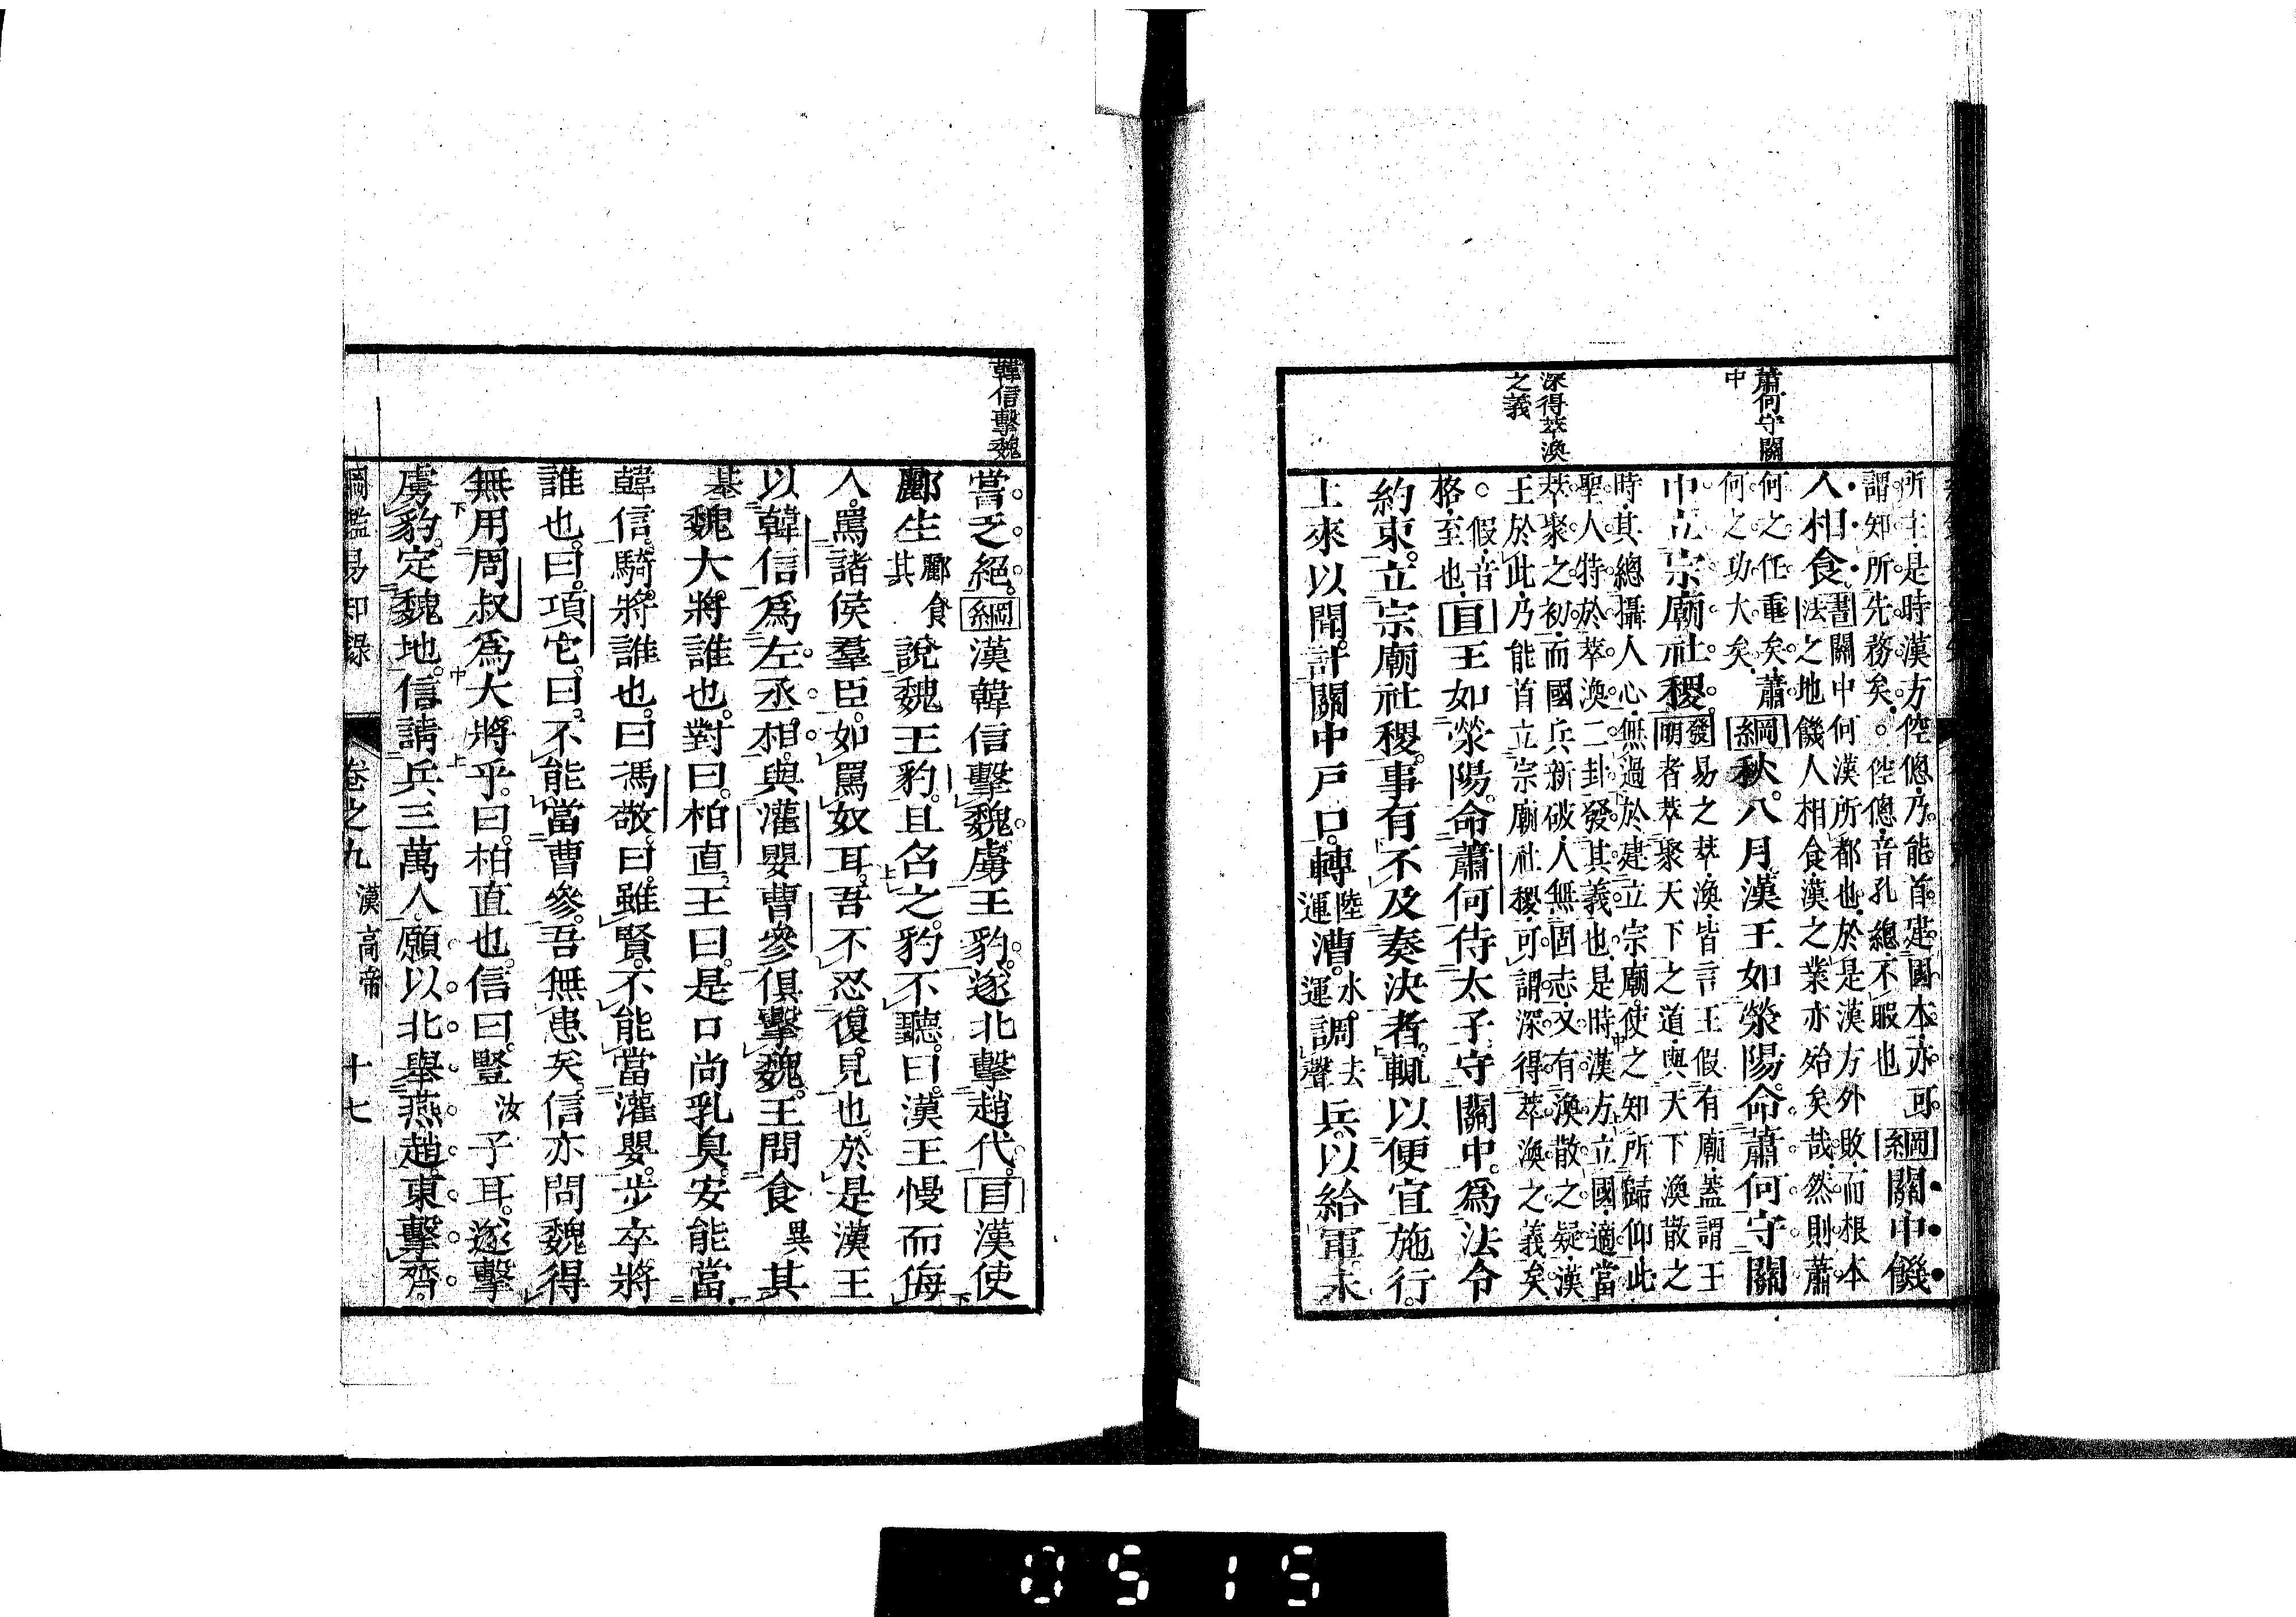 蕭何守關
中
深得萃渙
之義
所主是時漢方倥傯乃能首建國本亦可
謂知所先務矣。倥傯音孔總不暇也
綱關中饑
人相食
書關中何漢所都也於是漢方外敗而根本
法之地饑人相食漢之業亦殆矣哉然則蕭
何之任重矣蕭
何之功大矣
綱秋八月漢王如滎陽命蕭何守關
中立宗廟社稷
發易之萃渙皆言王假有廟蓋謂王
明者萃聚天下之道與天下渙散之
時其總攝人心無過於建立宗廟使之知所歸仰此
聖人特於萃渙二卦發其義也是時漢方立國適當
萃聚之初而國兵新破人無固志又有渙散之疑漢
王於此乃能首立宗廟社稷可謂深得萃渙之義矣
。假音
格至也
目王如滎陽命蕭何侍太子守關中爲法令
約束立宗廟社稷事有不及奏決者輒以便宜施行
上來以聞計關中戶口轉陸運漕水運調去聲兵以給軍未
韓信擊魏
嘗乏絕綱漢韓信擊魏虜王豹遂北擊趙代目漢使
酈生酈食其說魏王豹且召之豹不聽曰漢王慢而侮
人罵諸侯羣臣如罵奴耳吾不忍復見也於是漢王
以韓信爲左丞相與灌嬰曹參俱擊魏王問食異其
基魏大將誰也對曰柏直王曰是口尚乳臭安能當
韓信騎將誰也曰馮敬曰雖賢不能當灌嬰步卒將
誰也曰項它曰不能當曹參吾無患矣信亦問魏得
無用周叔爲大將乎曰柏直也信曰豎汝子耳遂擊
虜豹定魏地信請兵三萬人願以北舉燕趙東擊齊
綱鑑易知錄 卷之九 漢高帝 十七
0515